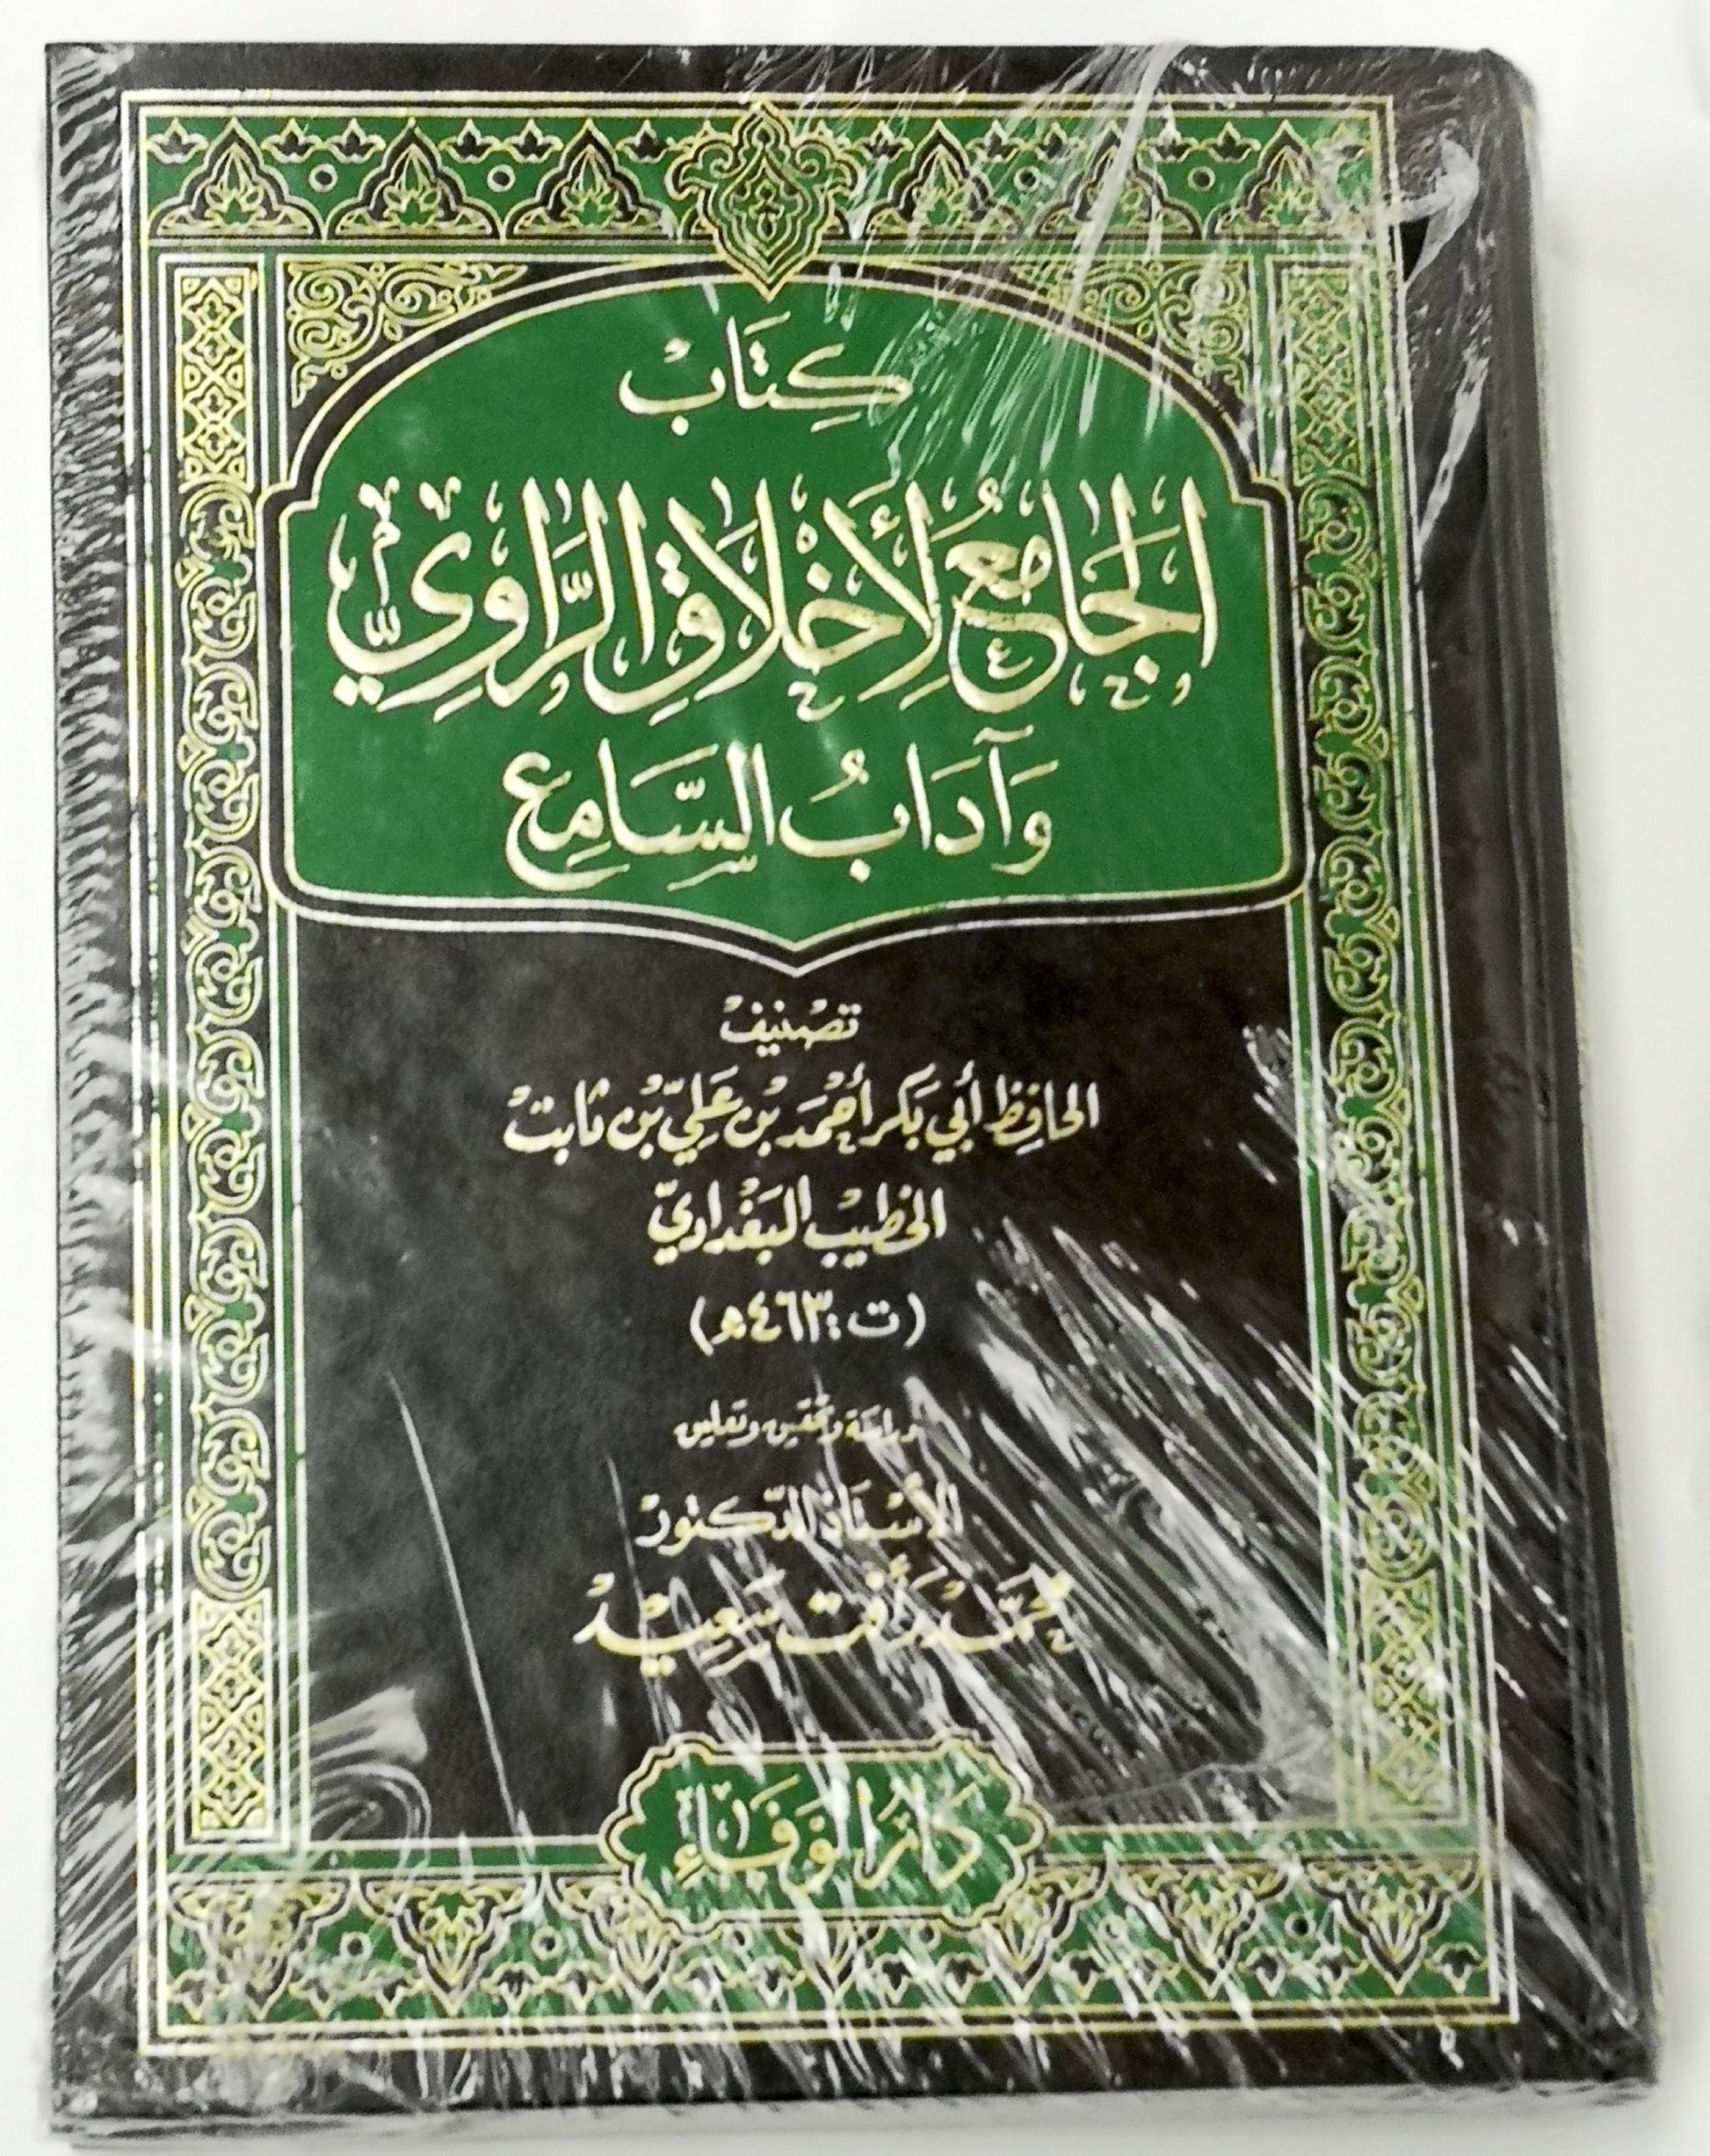 كِتَابْ
الجَامِعُ لِأَخْلَاقِ الرَّاوِيِّ
وَآدَابُ السَّامِعِ
تصْنيفْ
الحَافِظ أبي بَكر أحْمَد بْن عَليّ بْن ثابتْ
الخطيبْ البَغْدَادِيّ
(ت: ٤٦٣هـ)
دراسَة وتحقيق وتعليق
الأسْتاذ الدّكتورْ
محمَّد رَأفت سَعِيدْ
دَارُ الوَفَاءِ